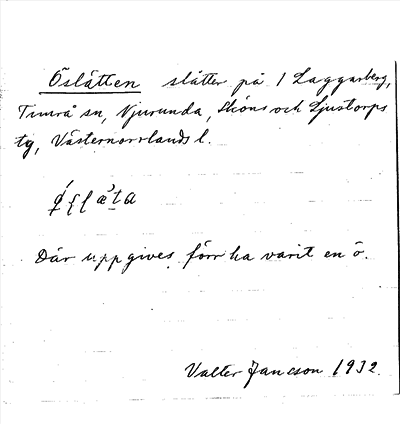 Öslåtten slåtter på 1 Laggarberg,
Timrå sn, Njurunda, Sköns och Ljustorps
tg, Västernorrlands l.
Där uppgives förr ha varit en ö.
Valter Jansson 1932